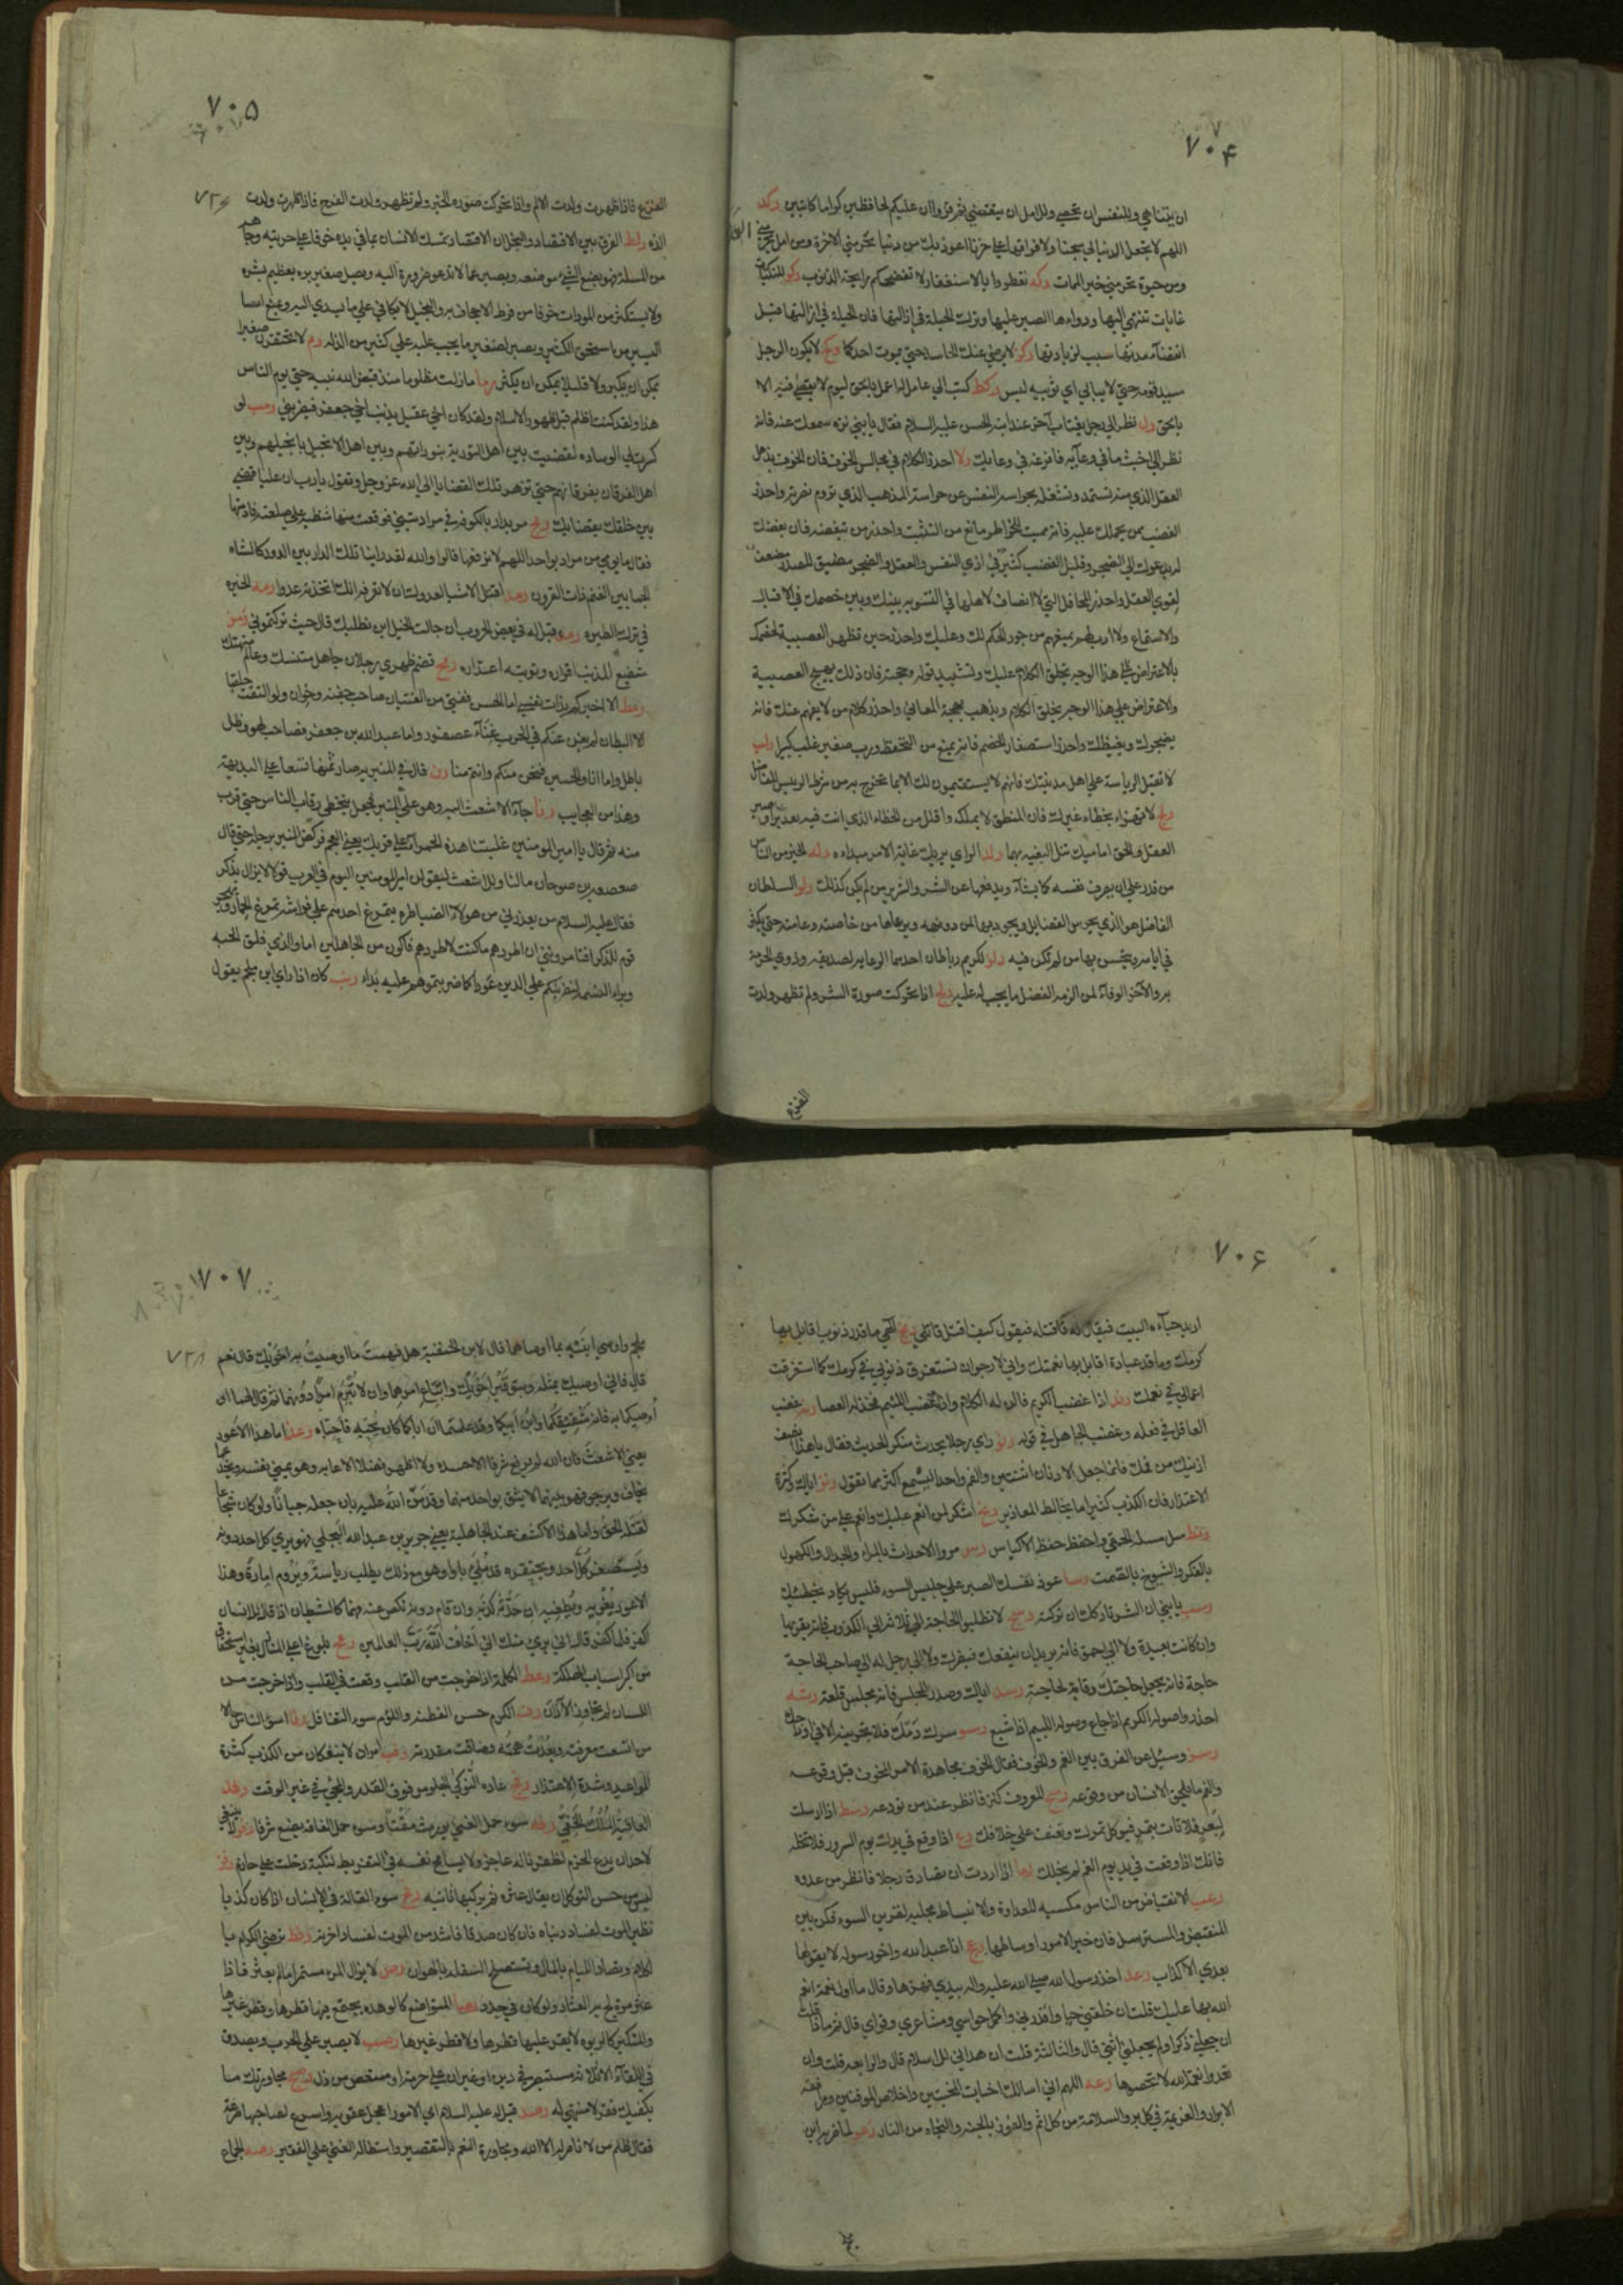 ٧٠۴
ان يتناهى وللنفس ان تحصى وللامل ان ينقضى ثم قرأ وان عليكم لحافظين كراما كاتبين ركد
اللهم لا تجعل الدنيا لي سجنا ولا فراقها علي حزنا اعوذ بك من دنيا تحرمني الاخرة ومن امل
ومن حيوة تحرمني خير الممات ركه تعطروا بالاستغفار لا تفضحكم رايحة الذنوب ركو للنكبات
غايات تنتهي اليها ودواءها الصبر عليها وترك الحيلة في ازالتها فان الحيلة في ازالتها قبل
انقضاء مدتها سبب لزيادتها ركز لا يرضى عنك الحاسد حتى يموت احدكما ركح لا يكون الرجل
سيد قومه حتى لا يبالي اي ثوبيه لبس ركط كتب الى عامل له اعمل بالحق ليوم لا يقضى فيه الا
بالحق رل نظر الى رجل يغتاب آخر عند ابنه الحسن عليه السلام فقال يا بني نزه سمعك عنه فانه
نظر الى اخبث ما في وعائه فافرغه في وعائك رلا احذر الكلام في مجالس الخوف فان الخوف يذهل
العقل الذي منه تستمد وتشغله بحراسة النفس عن حراسة المذهب الذي تروم نصرته واحذر
الغضب ممن يحملك عليه فانه مميت للخواطر مانع من التثبت واحذر من تبغضه فان بغضك
له يدعوك الى الضجر وقليل الغضب كثير في اذى النفس والعقل والضجر مضيق للصدر مضعف
لقوي العقل واحذر المحافل التي لا انصاف لاهلها في التسوية بينك وبين خصمك في الاقبال
والاستماع ولا ادب لهم يمنعهم من جور الحكم لك وعليك واحذر حين تظهر العصبية لخصمك
بالاعتراض على هذا الوجه يخلق الكلام عليك وتشييد قوله وحجته فان ذلك يهيج العصبية
والاعتراض على هذا الوجه يخلق الكلام ويذهب بهجة المعاني واحذر كلام من لا يفهم عنك فانه
يضجرك ويغيظك واحذر استصغار الخصم فانه يمنع من التحفظ ورب صغير غلب كبيرا رلب
لا تقبل الرياسة على اهل مدينتك فانهم لا يستقيمون لك الا بما تخرج به من شرط الرئيس الفاضل
رلج لا تهزاء بخطاء غيرك فان المنطق لا يملكه واقلل من الخطاء الذي انت فيه
العقل والحق اماميك تنل البغية بهما رلد الراي يريك غاية الامر مبداه رله الخير من الناس
من قدر على ان يصرف نفسه كما يشاء ويدفعها عن الشر والشرير من لم يكن كذلك رلو السلطان
الفاضل هو الذي يحرس الفضايل ويجود بها لمن دونه ويرعاها من خاصته وعامته حتى يكثر
في ايامه ويتحسن بها من لم تكن فيه رلز للكريم رباطان احدهما الرعاية لصديقه وذوي الحرمة
به والآخر الوفاء لمن الزمه الفضل ما يجب له عليه رلح اذا تحركت صورة الشر ولم تظهر ولدت
الفزع
٧٠۵
الفزع فاذا ظهرت ولدت الالم واذا تحركت صورة الخير ولم تظهر ولدت الفرج فاذا ظهرت ولدت
اللذة رلط الفرق بين الاقتصاد والبخل ان الاقتصاد تمسك الانسان بما في يده خوفا على حريته وجاهه
من المسئلة فهو يضع الشي موضعه ويصبر عما لا تدعو ضرورة اليه ويصل صغير بره بعظيم بشره
ولا يستكثر من المودات خوفا من فرط الاجحاف به والبخيل لا يكافي على ما يسدي اليه ويمنع ايضا
اليسير من استحق الكثير ويصبر لصغير ما يجب عليه على كثير من الذلة رم لا تحتقرن صغيرا
يمكن ان يكبر ولا قليلا يمكن ان يكثر رما ما زلت مظلوما منذ قبض الله نبيه حتى يوم الناس
هذا ولقد كنت اظلم قبل ظهور الاسلام ولقد كان اخي عقيل يذنب اخي جعفر فيضربني رمب لو
كسرت لي الوساده لقضيت بين اهل التورية بتوراتهم وبين اهل الانجيل بانجيلهم وبين
اهل الفرقان بفرقانهم حتى تزهر تلك القضايا الى الله عز وجل وتقول يا رب ان عليا قضى
بين خلقك بقضايك رمج مر بدار بالكوفة في مراد تبنى فوقعت منها شظية على صلعته فادمتها
فقال ما يومي من مراد بواحد اللهم لا ترفعها قالوا والله لقد راينا تلك الدار بين الدور كالشاة
الجما بين الغنم ذات القرون رمد اقتل الاشياء لعدوك ان لا تعرفه انك اتخذته عدوا رمه الخيرة
في ترك الطيرة رمو قيل له في بعض الحروب ان جالت الخيل اين نطلبك قال حيث تركتموني رمز
شفيع المذنب اقراره وتوبته اعتذاره رمح قصم ظهري رجلان جاهل متنسك وعالم متهتك
رمط الا اخبركم بذات نفسي اما الحسن ففتى من الفتيان صاحب جفنة وخوان ولو التقت حلقتا
البطان لم يغن عنكم في الحرب غناء عصفور واما عبد الله بن جعفر فصاحب لهو وظل
باطل واما انا والحسين فنحن منكم وانتم منا رن قال في المنبرية صار ثمنها تسعا على البديهة
وهذا من العجايب رنا جاء الاشعث اليه وهو على المنبر فجعل يتخطى رقاب الناس حتى قرب
منه ثم قال يا امير المؤمنين غلبتنا هذه الحمراء على قربك يعني العجم فركض المنبر برجله حتى قال
صعصعة بن صوحان ما لنا وللاشعث ليقولن امير المؤمنين اليوم في العرب قولا لا يزال يذكر
فقال عليه السلام من يعذرني من هولاء الضياطرة يتمرغ احدهم على فراشه تمرغ الحمار ويهجر
قوم للذكر افتامرونني ان اطردهم ما كنت لاطردهم فاكون من الجاهلين اما والذي فلق الحبة
وبراء النسمة ليضربنكم على الدين عودا كما ضربتموهم عليه بدءا رنب كان اذا راى ابن ملجم يقول
٧٠۶
اريد حياءه البيت فيقال له فاقتله فيقول كيف اقتل قاتلي رنج الهي ما قدر ذنوب اقابل بها
كرمك وما قدر عبادة اقابل بها نعمتك واني لارجو ان تستغرق ذنوبي في كرمك كما استغرقت
اعمالي في نعمك رند اذا غضب الكريم فالن له الكلام واذا غضب اللئيم فخذ له العصا رنه غضب
العاقل في فعله وغضب الجاهل في قوله رنو راى رجلا يحدث منكر الحديث فقال يا هذا انصف
اذنيك من فمك فانما جعل الاذنان اثنتين والفم واحدا لتسمع اكثر مما تقول رنز اياك وكثرة
الاعتذار فان الكذب كثيرا ما يخالط المعاذير رنح اشكر لمن انعم عليك وانعم على من شكرك
رنط سل مسئلة الحمقى واحفظ حفظ الاكياس رس مروا الاحداث بالمراء والجدال والكهول
بالفكر والشيوخ بالصمت رسا عود نفسك الصبر على جليس السوء فليس يكاد يخطئك
رسب يا بني ان الشر تاركك ان تركته رسج لا تطلبوا الحاجة الى ثلاثة الى الكذوب فانه يقربها
وان كانت بعيدة ولا الى احمق فانه يريد ان ينفعك فيضرك ولا الى رجل له الى صاحب الحاجة
حاجة فانه يجعل حاجتك وقاية لحاجته رسد اياك وصدر المجلس فانه مجلس قلعة رسه
احذروا صولة الكريم اذا جاع وصولة اللئيم اذا شبع رسو سرك دمك فلا تجرينه الا في اوداجك
رسز وسئل عن الفرق بين الغم والخوف فقال الخوف مجاهدة الامر المخوف قبل وقوعه
والغم ما يلحق الانسان من وقوعه رسح المعروف كنز فانظر عند من تودعه رسط اذا ارسلت
لبعر فلا تات بتمر فيؤكل تمرك وتعنف على خلافك رع اذا وقع في يدك يوم السرور فلا تخله
فانك اذا وقعت في يد يوم الغم لم يخلك رعا اذا اردت ان تصادق رجلا فانظر من عدوه
رعب الانقباض من الناس مكسبة للعداوة والانبساط مجلبة لقرين السوء فكن بين
المنقبض والمسترسل فان خير الامور اوساطها رعج انا عبد الله واخو رسوله لا يقولها
بعدي الا كذاب رعد اخذ رسول الله صلى الله عليه واله بيدي فهزها وقال ما اول نعمة انعم
الله بها عليك قلت ان خلقني حيا واقدرني واكمل حواسي ومشاعري وقواي قال ثم ماذا قلت
ان جعلني ذكرا ولم يجعلني انثى قال والثالثة قلت ان هداني للاسلام قال والرابعة قلت وان
تعدوا نعمة الله لا تحصوها رعه اللهم اني اسالك اخبات المخبتين واخلاص الموقنين ومرافقة
الابرار والعزيمة في كل بر والسلامة من كل اثم والفوز بالجنة والنجاة من النار رعو لما ضربه ابن
٧٠٧
ملجم واوصى ابنيه بما اوصاهما قال لابن الحنفية هل فهمت ما اوصيت به اخويك قال نعم
قال فاني اوصيك بمثله وبتوقير اخويك واتباع امرهما وان لا تبرم امرا دونهما ثم قال لهما
اوصيكما به فانه شقيقكما وابن ابيكما وقد علمتما ان اباكما كان يحبه فاحباه رعز اما هذا الاعور
يعني الاشعث فان الله لم يرفع شرفا الا حسده ولا اظهر فضلا الا عابه وهو يمني نفسه ويخدعها
يخاف ويرجو فهو بينهما لا يثق بواحد منهما وقد من الله عليه بان جعله جبانا ولو كان شجاعا
لقتله الحق واما هذا الاكثف عند الجاهلية يعني جرير بن عبد الله البجلي فهو يرى كل احد دونه
ويستصغر كل احد ويحتقره قد ملئ نارا وهو مع ذلك يطلب رياسة ويروم امارة وهذا
الاعور يغويه ويطغيه ان حدثه كذبه وان قام دونه نكص عنه فهما كالشيطان اذ قال للانسان
اكفر فلما كفر قال اني بريء منك اني اخاف الله رب العالمين رعح بلوغ اعلى المنازل بغير استحقاق
من اكبر اسباب الهلكة رعط الكلمة اذا خرجت من القلب وقعت في القلب واذا خرجت من
اللسان لم تجاوز الآذان رف الكرم حسن الفطنة واللؤم سوء التغافل رفا اسوء الناس حالا
من اتسعت معرفته وبعدت همته وضاقت مقدرته رفب امران لا ينفكان من الكذب كثرة
المواعيد وشدة الاعتذار رفج عادة النوكى الجلوس فوق القدر والمجيء في غير الوقت رفد
العافية الملك الخفي رفه سوء حمل الغنى يورث مقتا وسوء حمل الفاقة يضع شرفا رفو لا ينبغي
لاحد ان يدع الحزم لظفر ناله عاجز ولا يسامح نفسه في التفريط لنكبة دخلت على حازم رفز
ليس من حسن التوكل ان يقال عثرة ثم يركبها ثانية رفح سوء القالة في الانسان اذا كان كذبا
نظير الموت لفساد دنياه فان كان صدقا فاشد من الموت لفساد اخرته رفط ترضي الكرام بالكلام
وتصاد اللئام بالمال وتستصلح السفلة بالهوان رص لا يزال المرء مستمرا ما لم يعثر فاذا
عثر مرة لج به العثار ولو كان في جدد رصا المتواضع كالوهدة يجتمع فيها قطرها وقطر غيرها
والمتكبر كالربوة لا يقر عليها قطرها ولا قطر غيرها رصب لا يصبر على الحرب ويصدق
في اللقاء الا ثلاثة مستبصر في دين او غيران على حرمة او ممتعض من ذل رصج مجاوزتك ما
يكفيك فقر لا منتهى له رصد قيل له عليه السلام اي الامور اعجل عقوبة واسرع لصاحبها صرعة
فقال ظلم من لا ناصر له الا الله ومجاورة النعم بالتقصير واستطالة الغني على الفقير رصه الجماع